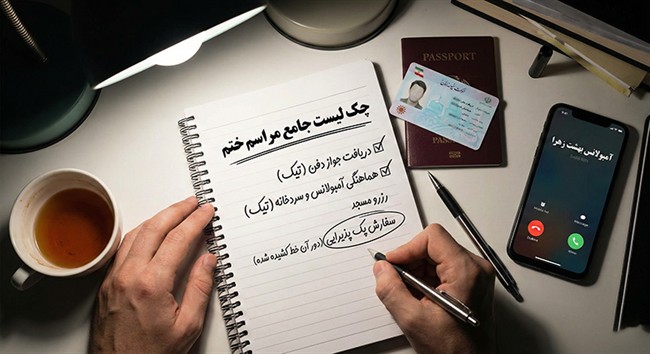 چک لیست جامع مراسم ختم
دریافت جواز دفن (تیک)
هماهنگی آمبولانس و سردخانه (تیک)
رزرو مسجد
سفارش پک پذیرایی (دور آن خط کشیده شده)
PASSPORT
آمبولانس بهشت زهرا!